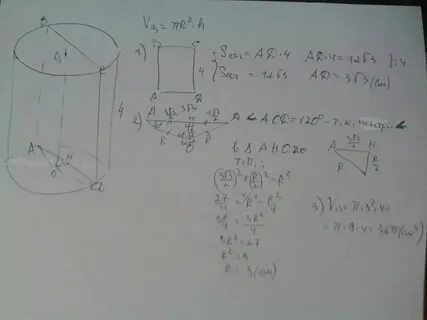 Vц = πR²·h
B
C
O₁
4
A
H
O
D
1)
B C
4
A D
{ Sсеч = AD·4 AD·4 = 12√3 | :4
{ Sсеч = 12√3 AD = 3√3 (см)
2)
A 3√3/2 H 3√3/2 D
R R
O
∠AOD = 120° – т.к.
A 3√3/2 H
R R/2
O
В △AHO по
т.П.:
(3√3/2)² + (R/2)² = R²
27/4 = R² - R²/4
27/4 = 3R²/4
3R² = 27
R² = 9
R = 3 (см)
3) Vц = π·3²·4 =
= π·9·4 = 36π (см³)